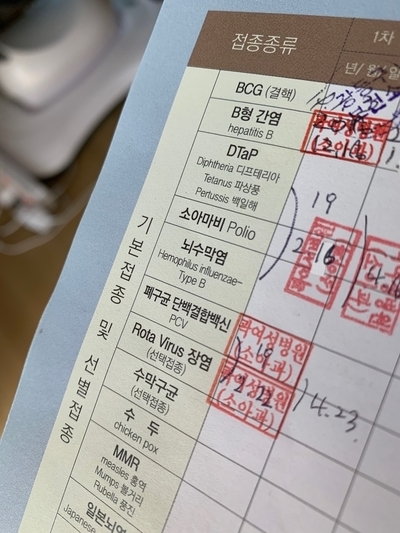 접종종류
1차
년/월/일
BCG (결핵)
B형 간염
hepatitis B
DTaP
Diphtheria 디프테리아
Tetanus 파상풍
Pertussis 백일해
19
소아마비 Polio
뇌수막염
Hemophilus influenzae-
Type B
2.16.
폐구균 단백결합백신
PCV
Rota Virus 장염
(선택접종)
여성병원
(소아과)
수막구균
(선택접종)
여성병원
(소아과)
4.23
수 두
chicken pox
MMR
measles 홍역
Mumps 볼거리
Rubella 풍진
일본뇌염
Japanese
기본접종 및 선별접종